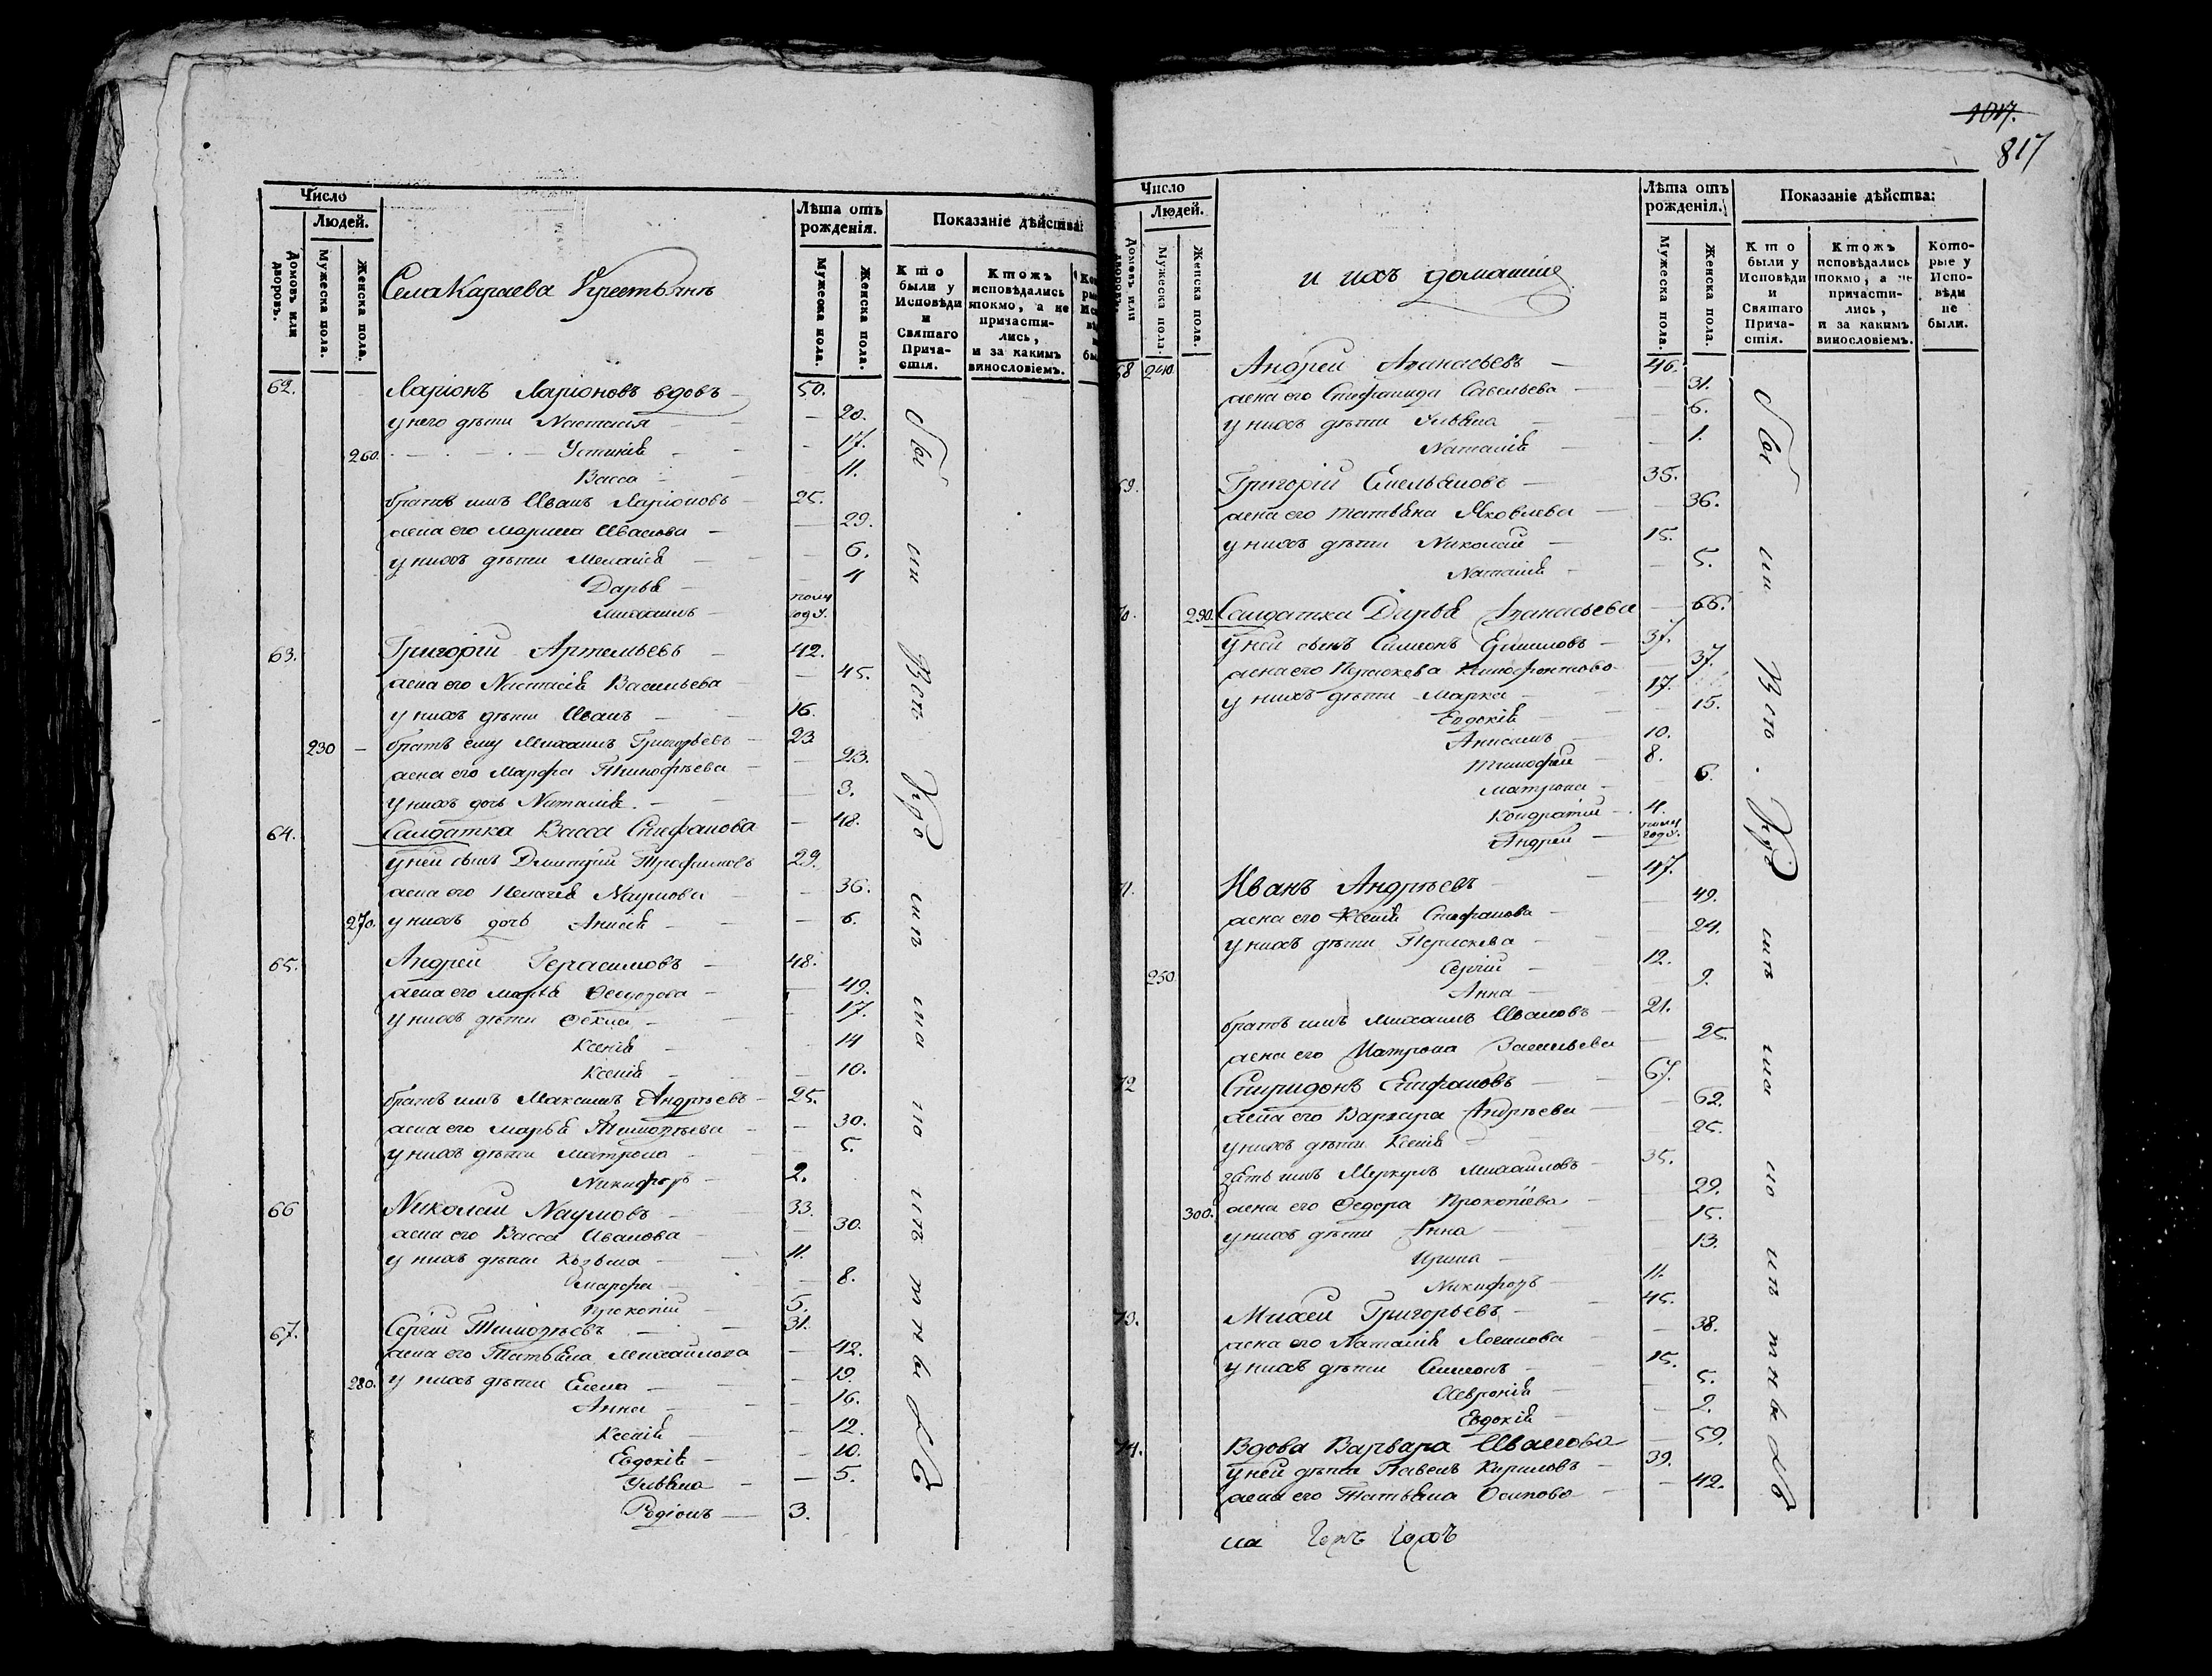 1017.
817
Число
Людей.
Домовъ или дворовъ.
Мужеска пола.
Женска пола.
Села Караева Крестьянъ
Лѣта отъ рожденія.
Мужеска пола.
Женска пола.
Показаніе дѣйства:
Кто были у Исповѣди и Святаго Причастія.
Ктожъ исповѣдались токмо, а не причастились, и за какимъ винословіемъ.
62. Ларіонъ Ларіоновъ вдовъ 50.
у него дѣти Настасія 20.
260. Устинія 17.
Васса 11.
братъ имъ Иванъ Ларіоновъ 25.
жена его Марина Иванова 29.
у нихъ дѣти Меланія 6.
Дарья 4
Михаилъ полу году.
63. Григорій Артемьевъ 42.
жена его Настасія Васильева 45.
у нихъ дѣти Иванъ 16.
230 братъ ему Михаилъ Григорьевъ 23
жена его Марфа Тимофѣева 23.
у нихъ дочь Наталія 3.
64. Салдатка Васса Стефанова 48.
у ней сынъ Димитрій Трофимовъ 29.
жена его Пелагія Наумова 36.
270. у нихъ дочь Анисія 6.
65. Андрей Герасимовъ 48.
жена его Марья Ѳедорова 49.
у нихъ дѣти Ѳекла 17.
Ксенія 14
Ксенія 10.
братъ имъ Максимъ Андрѣевъ 25.
жена его Марья Тимофѣева 30.
у нихъ дѣти Матрона 5.
Никифоръ 2.
66 Николай Наумовъ 33.
жена его Васса Иванова 30.
у нихъ дѣти Козьма 11.
Марфа 8.
Прокопій 5.
67. Сергій Тимофѣевъ 31.
жена его Татьяна Михаилова 42.
280. у нихъ дѣти Елена 19.
Анна 16.
Ксенія 12.
Евдокія 10.
Ульяна 5.
Родіонъ 3.
Число
Людей.
Домовъ или дворовъ.
Мужеска пола.
Женска пола.
и ихъ домашнія
Лѣта отъ рожденія.
Мужеска пола.
Женска пола.
Показаніе дѣйства:
Кто были у Исповѣди и Святаго Причастія.
Ктожъ исповѣдались токмо, а не причастились, и за какимъ винословіемъ.
Которые у Исповѣди не были.
68 240. Андрей Аѳанасьевъ 46.
жена его Степанида Савельева 31.
у нихъ дѣти Ульяна 6.
Наталія 1.
69. Григорій Емельяновъ 35.
жена его Татьяна Яковлева 36.
у нихъ дѣти Николай 15.
Наталія 5.
70. 290. Салдатка Дарья Аѳанасьева 66.
у ней сынъ Симеонъ 37.
жена его 37.
у нихъ дѣти Марка 17.
Евдокія 15.
Анисимъ 10.
Тимофей 8.
Матрона 6.
Кондратій 4.
Андрей полу году.
71. Иванъ Андрѣевъ 47.
жена его Ксенія Стефанова 49.
у нихъ дѣти Перасκева 24.
250 Сергій 12.
Анна 9.
братъ имъ Михаилъ Ивановъ 21.
жена его Матрона Васильева 25.
72 Спиридонъ Епифановъ 67.
жена его Варвара Андрѣева 62.
у нихъ дѣти Ксенія 25.
зять имъ Меркулъ Михаиловъ 35.
300. жена его Ѳедора Прокопіева 29.
у нихъ дѣти Анна 15.
Ирина 13.
Никифоръ 11.
73. Михей Григорьевъ 45.
жена его Наталія Логинова 38.
у нихъ дѣти Симеонъ 15.
Ѳевронія 5.
Евдокія 2.
74. Вдова Варвара Иванова 59.
у ней дѣти Павелъ Кириловъ 39.
жена его Татьяна Осипова 42.